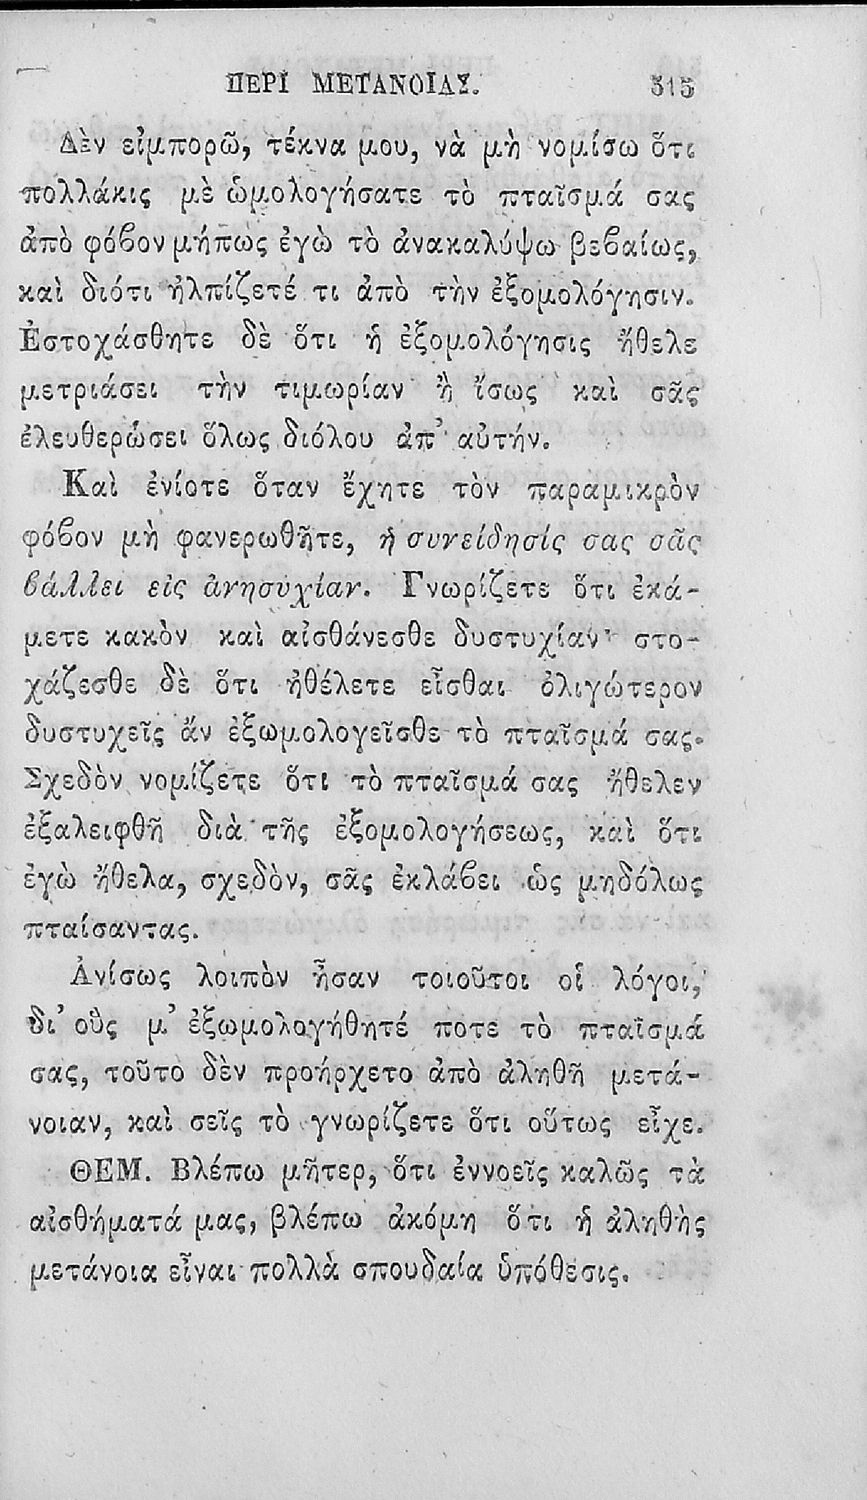 ΠΕΡΙ ΜΕΤΑΝΟΙΑΣ. 315
Δὲν εἰμπορῶ, τέκνα μου, νὰ μὴ νομίσω ὅτι
πολλάκις μὲ ὡμολογήσατε τὸ πταῖσμά σας
ἀπὸ φόβον μήπως ἐγὼ τὸ ἀνακαλύψω βεβαίως,
καὶ διότι ἠλπίζετέ τι ἀπὸ τὴν ἐξομολόγησιν.
Ἐστοχάσθητε δὲ ὅτι ἡ ἐξομολόγησις ἤθελε
μετριάσει τὴν τιμωρίαν ἢ ἴσως καὶ σᾶς
ἐλευθερώσει ὅλως διόλου ἀπ' αὐτήν.
Καὶ ἐνίοτε ὅταν ἔχητε τὸν παραμικρὸν
φόβον μὴ φανερωθῆτε, ἡ συνείδησίς σας σᾶς
βάλλει εἰς ἀνησυχίαν. Γνωρίζετε ὅτι ἐκά-
μετε κακὸν καὶ αἰσθάνεσθε δυστυχίαν· στο-
χάζεσθε δὲ ὅτι ἠθέλετε εἶσθαι ὀλιγώτερον
δυστυχεῖς ἄν ἐξωμολογεῖσθε τὸ πταῖσμά σας.
Σχεδὸν νομίζετε ὅτι τὸ πταῖσμά σας ἤθελεν
ἐξαλειφθῆ διὰ τῆς ἐξομολογήσεως, καὶ ὅτι
ἐγὼ ἤθελα, σχεδὸν, σᾶς ἐκλάβει ὡς μηδόλως
πταίσαντας.
Ἀνίσως λοιπὸν ἦσαν τοιοῦτοι οἱ λόγοι,
δι' οὓς μ' ἐξωμολογήθητέ ποτε τὸ πταῖσμά
σας, τοῦτο δὲν προήρχετο ἀπὸ ἀληθῆ μετά-
νοιαν, καὶ σεῖς τὸ γνωρίζετε ὅτι οὕτως εἶχε.
ΘΕΜ. Βλέπω μῆτερ, ὅτι ἐννοεῖς καλῶς τὰ
αἰσθήματά μας, βλέπω ἀκόμη ὅτι ἡ ἀληθὴς
μετάνοια εἶναι πολλὰ σπουδαία ὑπόθεσις.